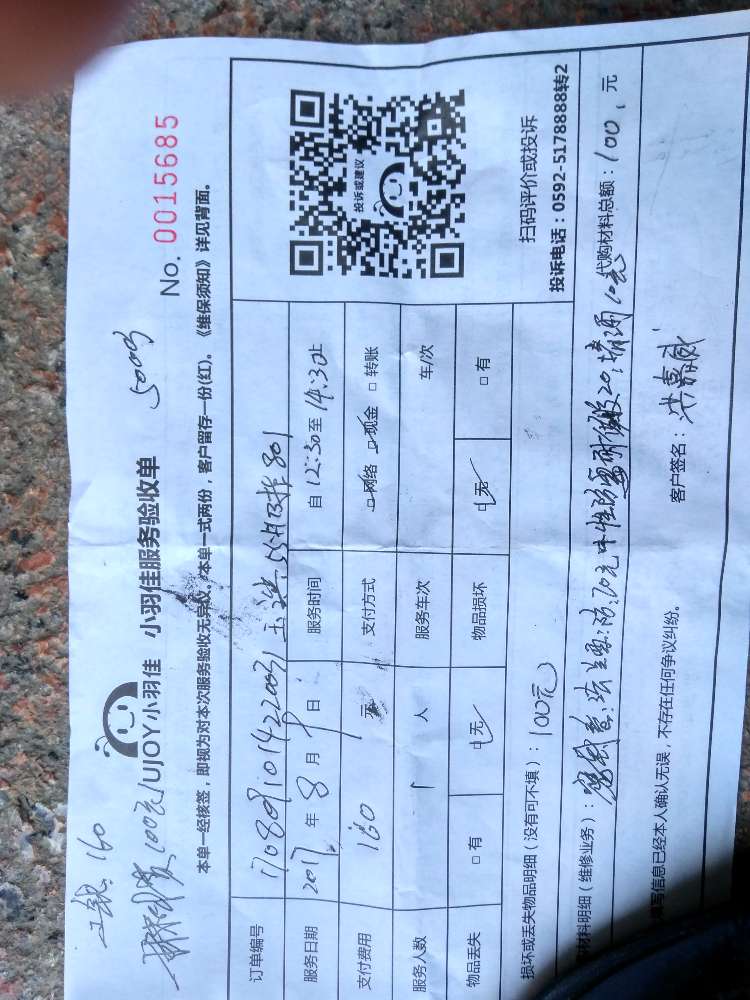 160
100元
UJOY小羽佳 小羽佳服务验收单
No. 0015685
本单一经核签，即视为对本次服务验收无异议。本单一式两份，客户留存一份(红)。《维保须知》详见背面。
订单编号
服务日期 2017 年 8 月 9 日 服务时间 自 12:30 至 14:30 止
支付费用 160 元 支付方式 □网络 □现金 □转账
服务人数 1 人 服务车次 车/次
物品丢失 □有 □无 物品损坏 □无 □有
投诉或建议
扫码评价或投诉
投诉电话：0592-5178888转2
损坏或丢失物品明细（没有可不填）：100元
材料明细（维修业务）： 代购材料总额：100，元
填写信息已经本人确认无误，不存在任何争议纠纷。
客户签名：洪嘉威